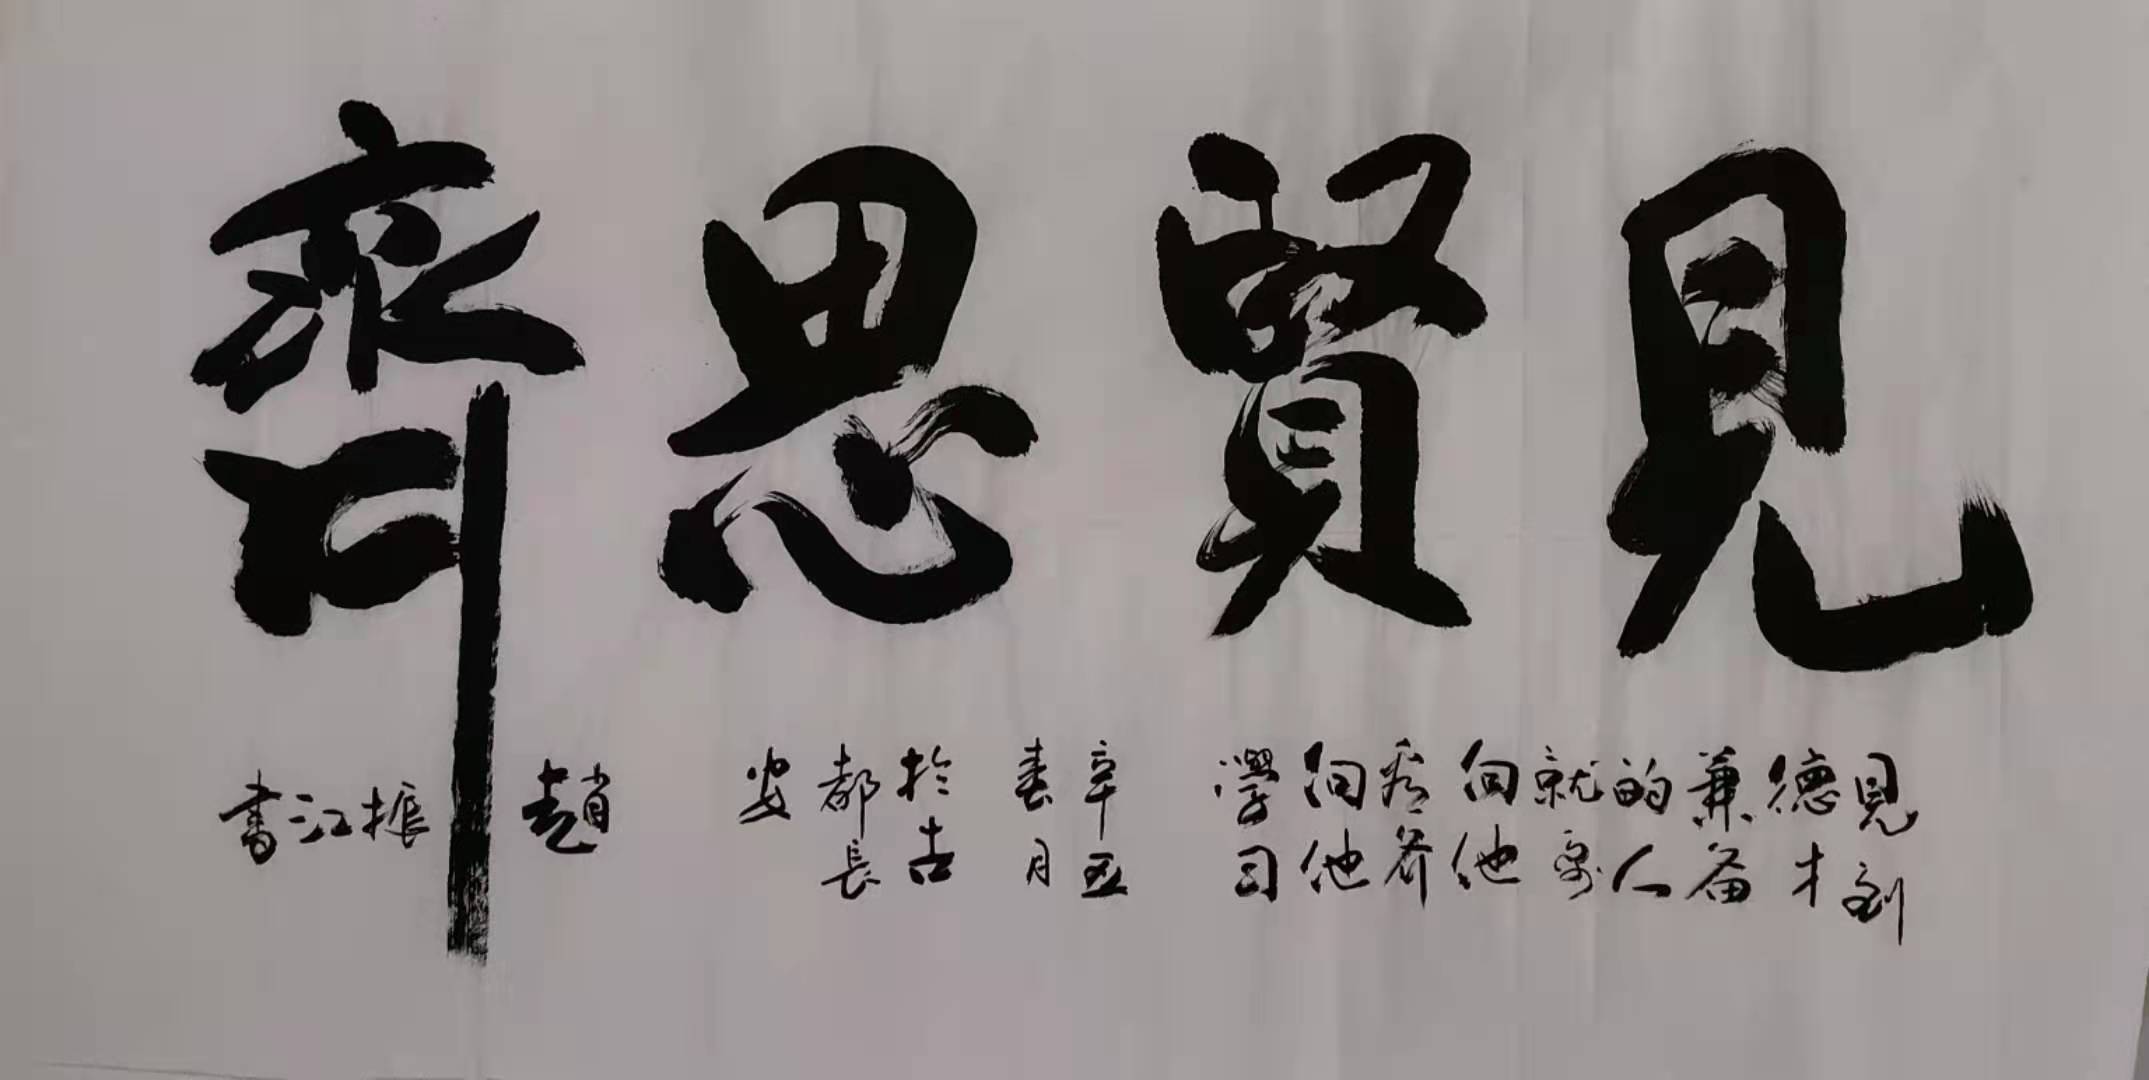 見賢思齊
見到
德才
兼备
的人
就要
向他
看齐
向他
學习
辛丑
春月
於古
都長
安
趙振江書